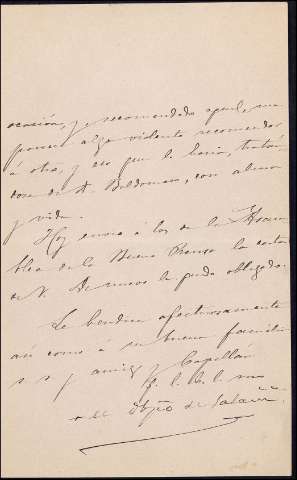 ocasión, y recomendado aquel, me
parece algo violento recomendar
á otro, y eso que lo haria, tratán
dose de D. Baldomero, con alma
y vida.
Hoy envio á los de la Asam
blea de la Buena Prensa la carta
de V. De nuevo le quedo obligado.
Le bendice afectuosamente
asi como á su buena familia
s. s. y amigo y Capellán
q. l. b. l. m.
+ el Obpo de